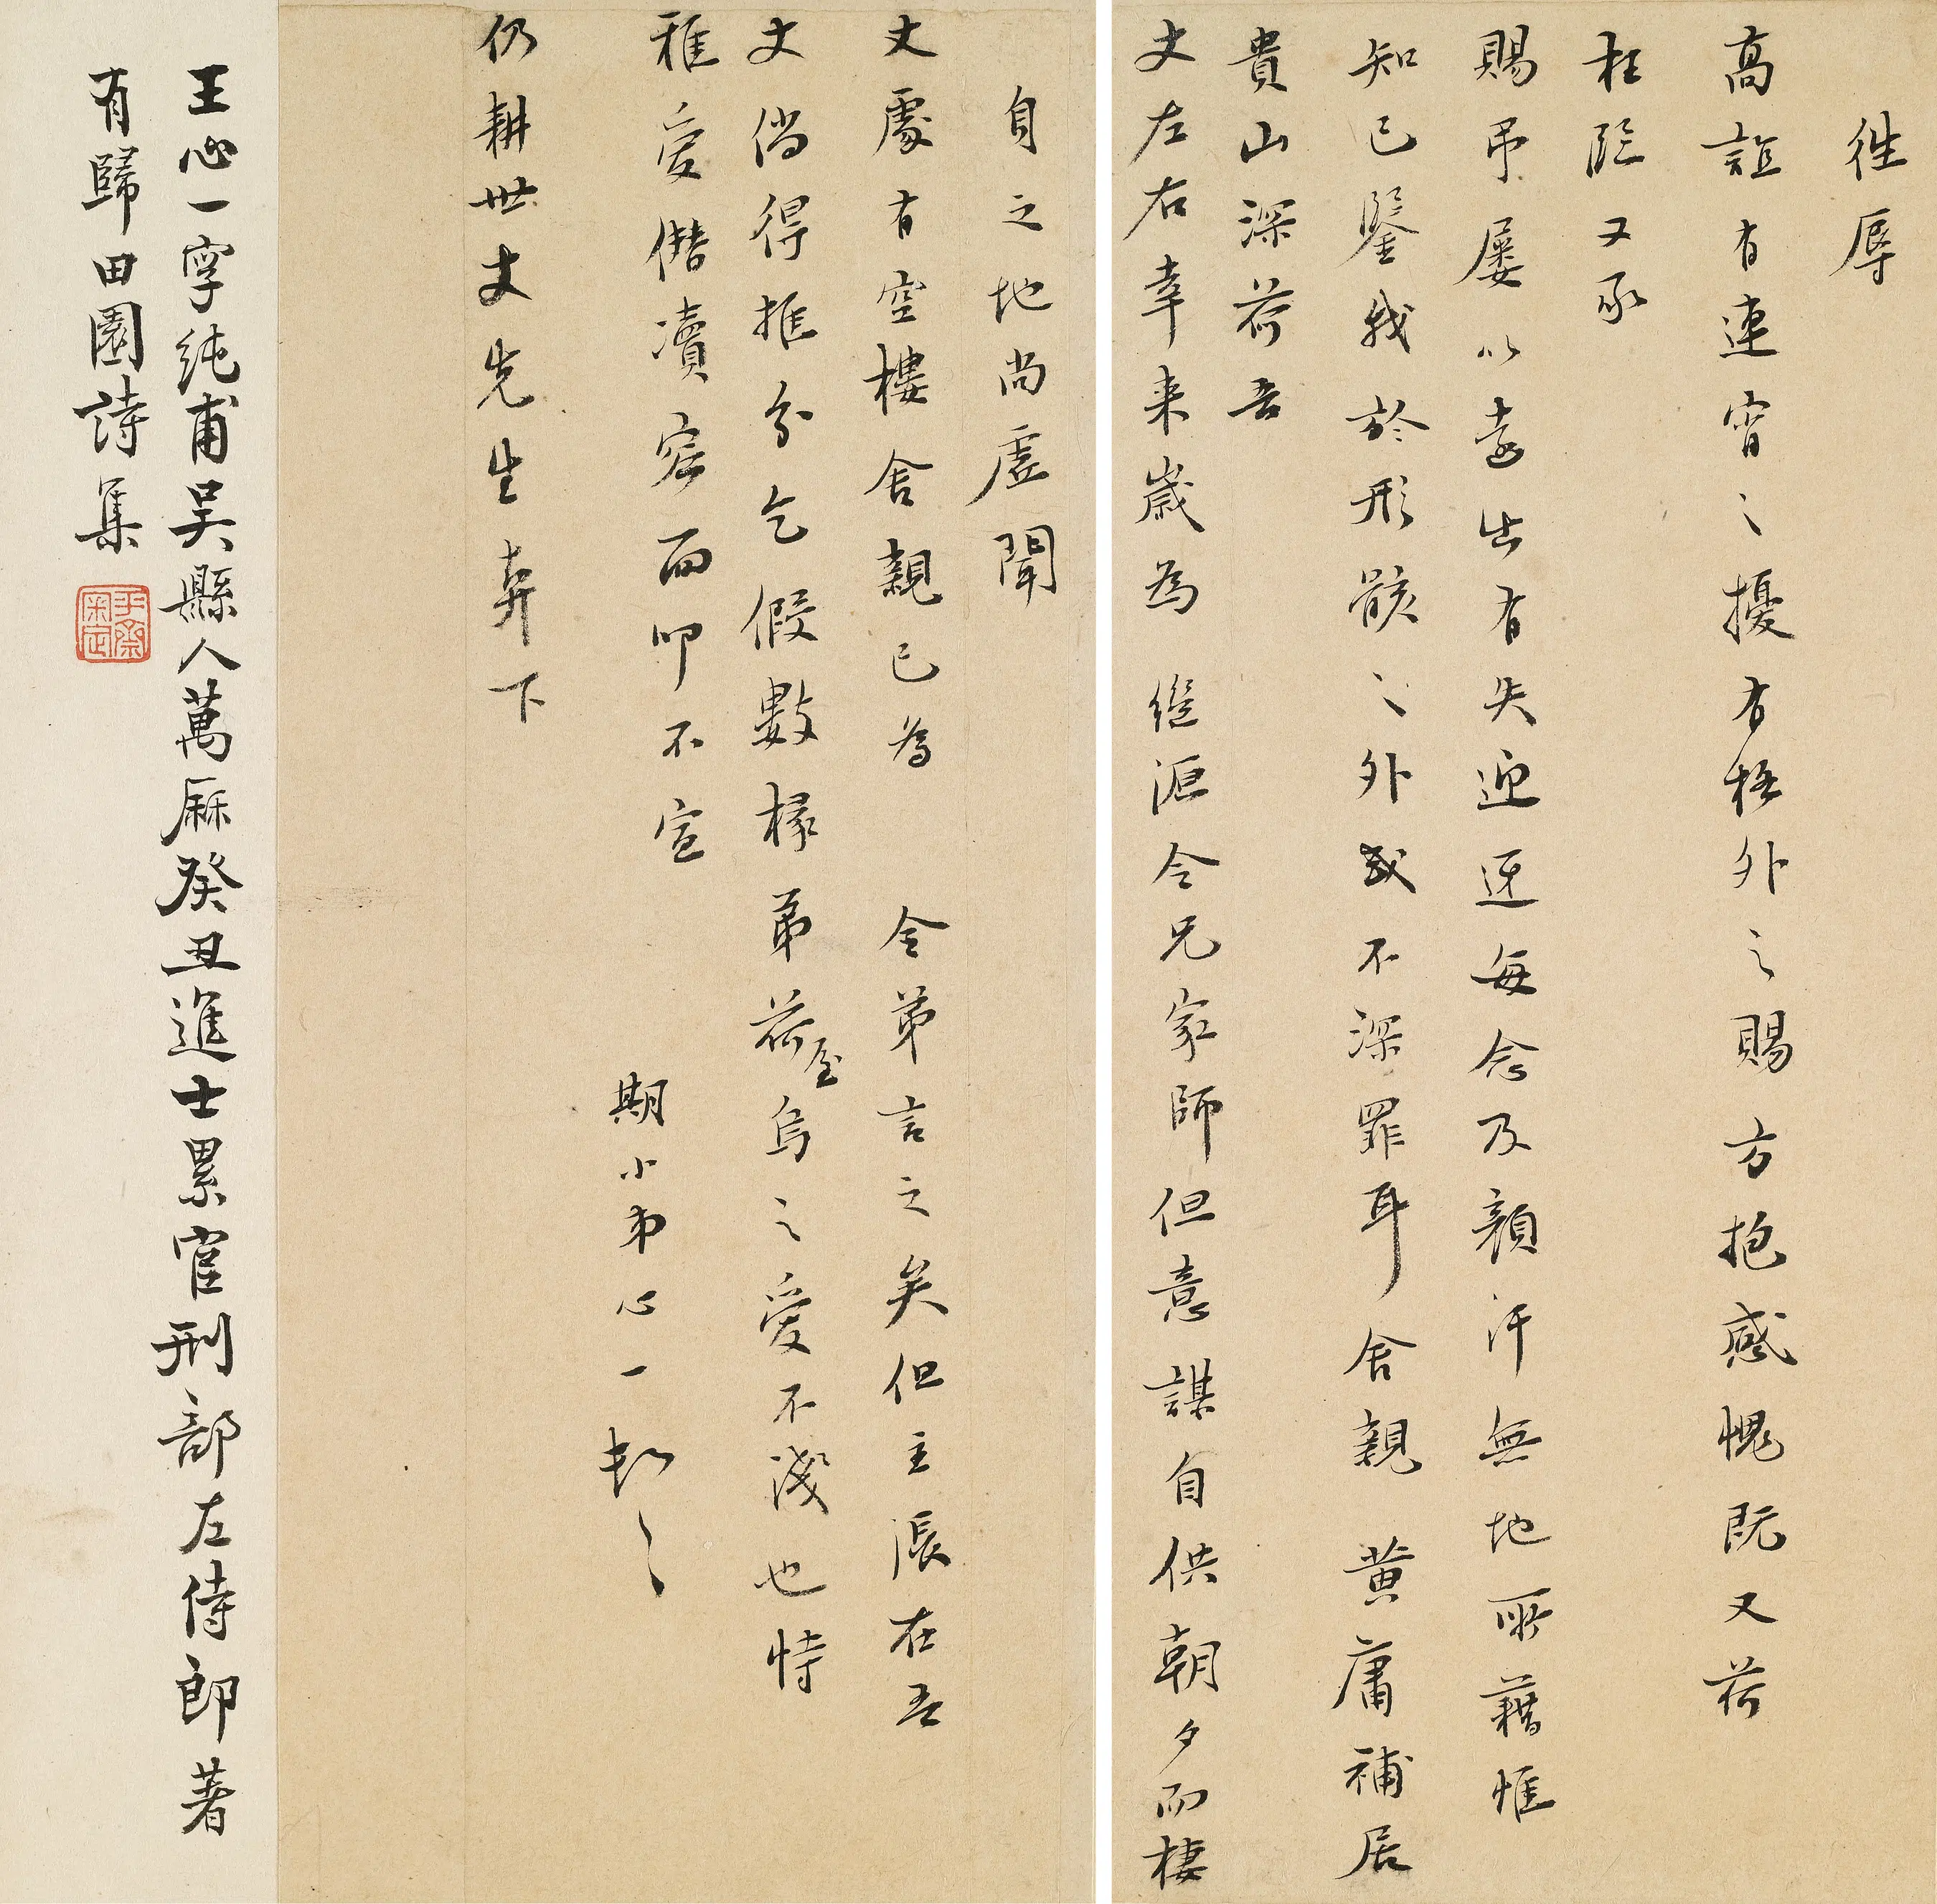 徃辱
高誼有連宵之擾有格外之賜方抱感愧既又荷
枉臨又承
賜弔屢以遠出有失迎迓每念及顏汗無地所藉惟
知己鑒我於形骸之外或不深罪耳舍親黃庸補居
貴山深荷吾
丈左右幸来歲為繼源令兄家師但意謀自供朝夕而棲
自之地尚虛聞
丈處有空樓舍親已為令弟言之矣但主張在吾
丈倘得推分乞假數椽弟荷屋烏之愛不淺也恃
雅愛僭瀆容面叩不宣
期小弟心一頓
仍耕世丈先生 下
王心一字純甫吳縣人萬厤癸丑進士累官刑部左侍郎著
有歸田園詩集